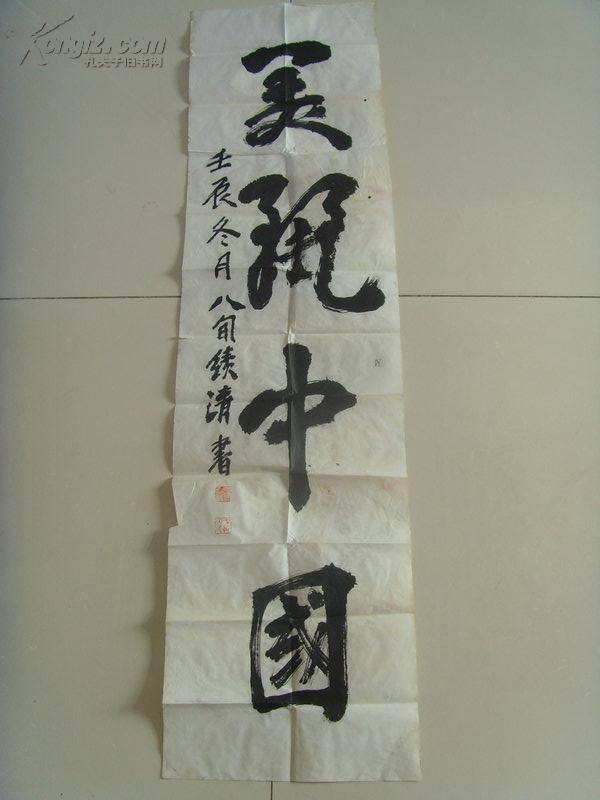 Kongfz.com
孔夫子旧书网
美丽中國
壬辰冬月八旬鐃清書